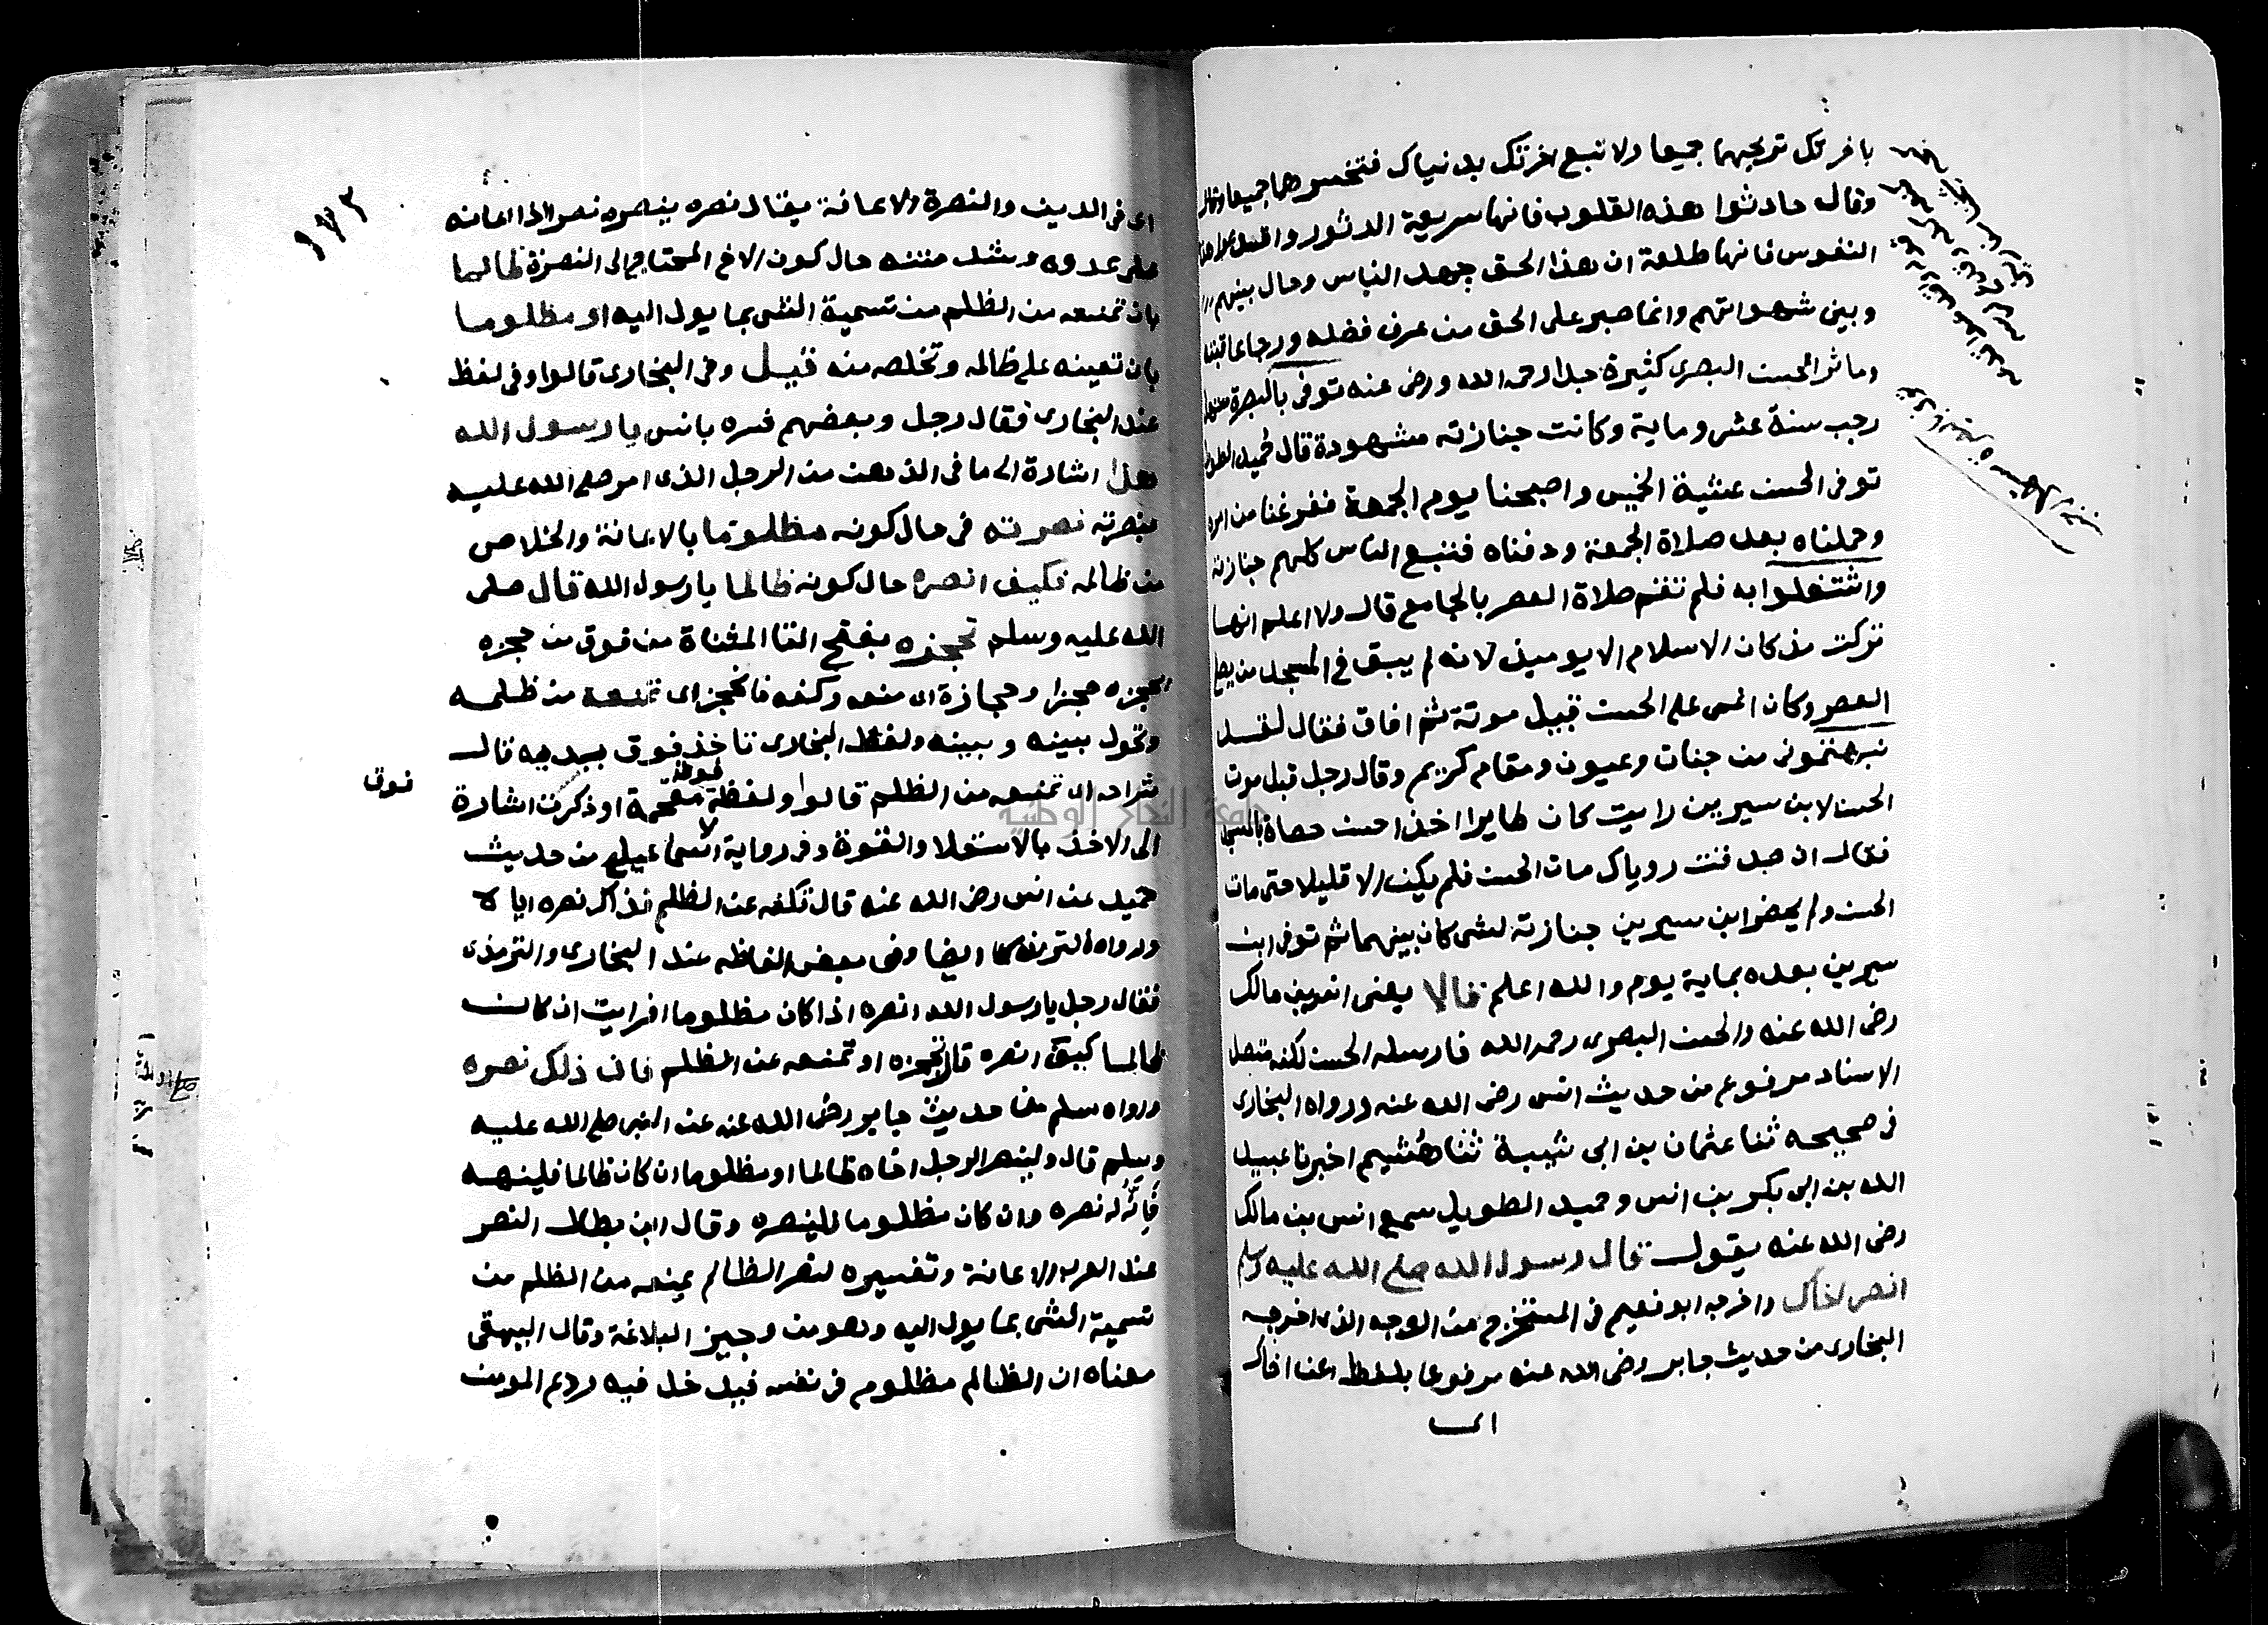 باخرتك تربحهما جميعا ولا تبع اخرتك بدنياك فتخسرهما جميعا
وقال حادثوا هذه القلوب فانها سريعة الدثور
النفوس فانها طلعة ان هذا الحق جهد الناس وحال بينهم
وبين شهواتهم وانما صبر على الحق من عرف فضله ورجا عاقبته
وماثر الحسن البصرى كثيرة جدا رحمه الله ورضى عنه توفى بالبصرة
رجب سنة عشر وماية وكانت جنازته مشهودة قال حميد الطويل
توفى الحسن عشية الخميس واصبحنا يوم الجمعة ففرغنا من امره
وحملناه بعد صلاة الجمعة ودفناه فتبع الناس كلهم جنازته
واشتغلوا به فلم تقم صلاة العصر بالجامع قال ولا اعلم انها
تركت مذ كان الاسلام الا يوميذ لانه لم يبق فى المسجد من يصلى
العصر وكان اغمى على الحسن قبيل موتة ثم افاق فقال لقد
نبهتمونى من جنات وعيون ومقام كريم وقال رجل قبل موت
الحسن لابن سيرين رايت كان طايرا اخذ احسن حصاة بالمسجد
فقال ان صدقت روياك مات الحسن فلم يكن الا قليلا حتى مات
الحسن ولم يحضر ابن سيرين جنازته لشى كان بينهما ثم توفى ابن
سيرين بعده بماية يوم والله اعلم قالا يعنى انس بن مالك
رضى الله عنه والحسن البصرى رحمه الله فارسله الحسن لكنه متصل
الاسناد مرفوع من حديث انس رضى الله عنه ورواه البخارى
فى صحيحه ثنا عثمان بن ابى شيبة ثنا هُشيم اخبرنا عبيد
الله بن ابى بكر بن انس وحميد الطويل سمع انس بن مالك
رضى الله عنه يقول قال رسول الله صلى الله عليه وسلم
انصر اخاك واخرجه ابو نعيم فى المستخرج من الوجه الذى اخرجه
البخارى من حديث جابر رضى الله عنه مرفوعا بلفظ اعن اخاك
اى
١٧٢
اى فى الدين والنصرة والاعانة يقال نصره ينصره نصرا اذا اعانه
على عدوه وشد منه حال كون الاخ المحتاج الى النصرة ظالما
بان تمنعه من الظلم من تسمية الشى بما يول اليه او مظلوما
بان تعينه على ظالمه وتخلصه منه قيل وفى البخارى قالوا وفى لفظ
عند البخارى فقال رجل وبعضهم فسره بانس يا رسول الله
هذا اشارة الى ما فى الذهن من الرجل الذى امر صلى الله عليه
بنصرته نصرته فى حال كونه مظلوما بالاعانة والخلاص
من ظالمه فكيف انصره حال كونه ظالما يا رسول الله قال صلى
الله عليه وسلم تحجزه بفتح التا المثناة من فوق من حجزه
يحجزه حجزا وحجازة اى منعه وكفه فانحجز اى تمنعه من ظلمه
وتحول بينه وبينه ولفظ البخارى تاخذ فوق يديه قال
شراحه اى تمنعه من الظلم قالوا ولفظة فوق مقحمة او ذكرت اشارة
فوق
الى الاخذ بالاستعلا والقوة وفى رواية الاسماعيلى من حديث
حميد عن انس رضى الله عنه قال تكفه عن الظلم فذاك نصره اياه
ورواه الترمذى ايضا وفى بعض الفاظه عند البخارى والترمذى
فقال رجل يا رسول الله انصره اذا كان مظلوما افرايت ان كان
ظالما كيف انصره قال تحجزه او تمنعه عن الظلم فان ذلك نصره
ورواه مسلم من حديث جابر رضى الله عنه عن النبى صلى الله عليه
وسلم قال ولينصر الرجل اخاه ظالما او مظلوما ان كان ظالما فلينهه
فانه له نصره وان كان مظلوما فلينصره وقال ابن بطال النصر
عند العرب الاعانة وتفسيره لنصر الظالم بمنعه من الظلم من
تسمية الشى بما يول اليه وهو من وجيز البلاغة وقال البيهقى
معناه ان الظالم مظلوم فى نفسه فيدخل فيه ردع المرء
جامعة النجاح الوطنية